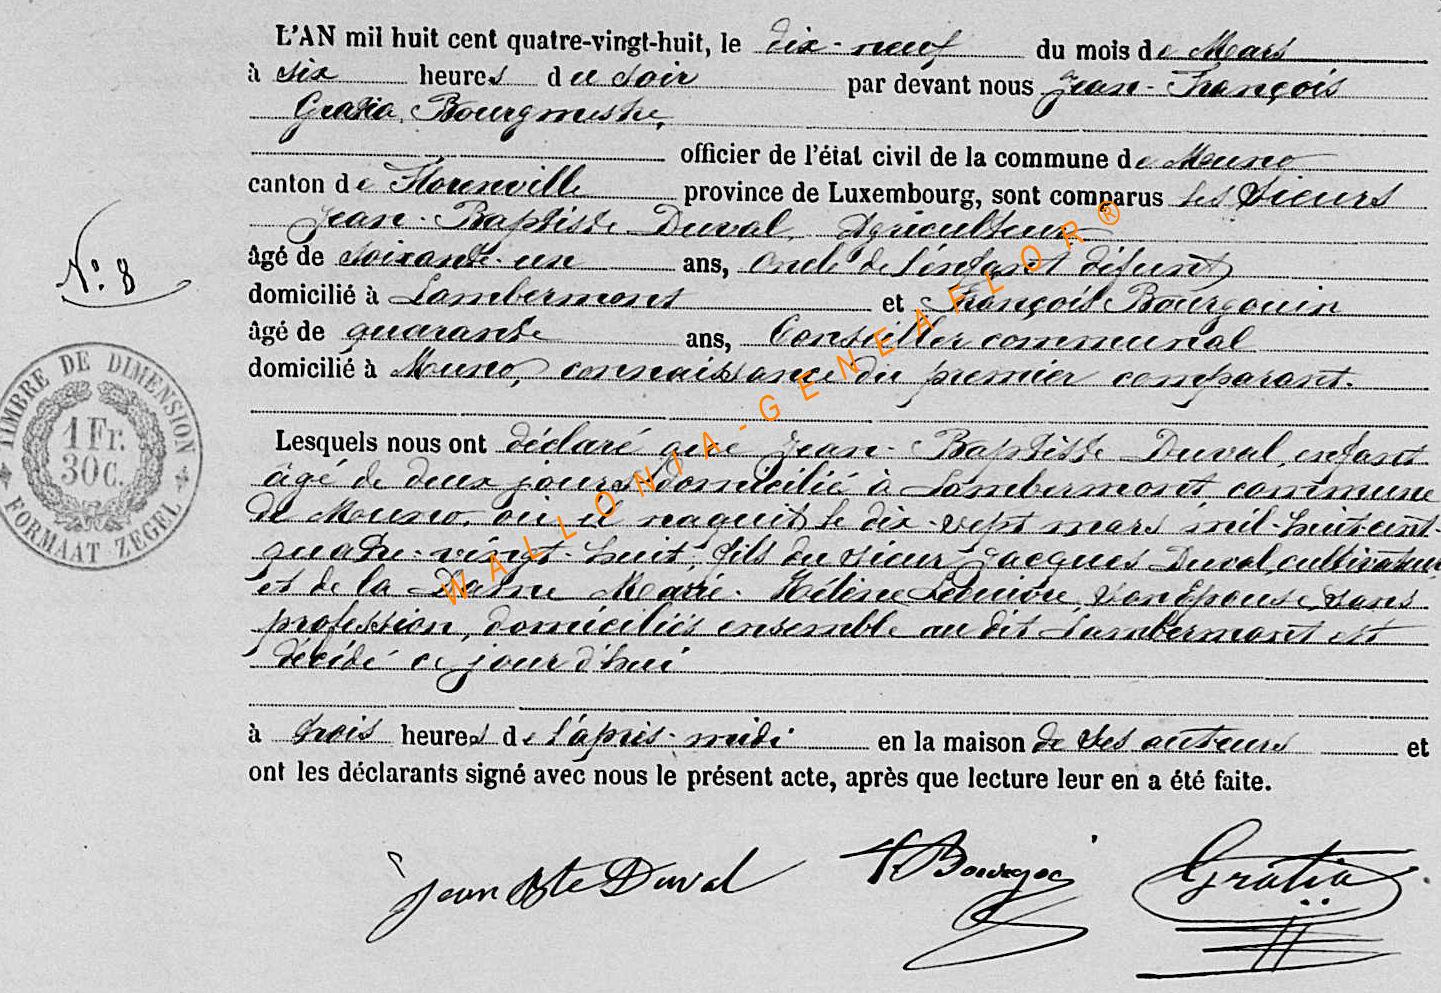 L'AN mil huit cent quatre-vingt-huit, le dix-neuf du mois de Mars
à six heures du soir par devant nous Jean-François
Gratia, Bourgmestre,
officier de l'état civil de la commune de Muno
canton de Florenville province de Luxembourg, sont comparus les Sieurs
Jean-Baptiste Duval, Agriculteur
âgé de soixante-un ans, oncle de l'enfant défunt
domicilié à Lambermont et François Bourgouin
âgé de quarante ans, Conseiller communal
domicilié à Muno, connaissance du premier comparant.
N°. 8
TIMBRE DE DIMENSION
1 Fr.
30 C.
FORMAAT ZEGEL
Lesquels nous ont déclaré que Jean-Baptiste Duval, enfant
âgé de deux jours domicilié à Lambermont, commune
de Muno, où il naquit le dix-sept mars mil-huit-cent-
quatre-vingt-huit, fils du sieur Jacques Duval, cultivateur
et de la Dame Marie-Hélène son épouse, sans
profession, domiciliés ensemble au dit Lambermont est
décédé ce jour d'hui
à trois heures de l'après-midi en la maison de ses auteurs et
ont les déclarants signé avec nous le présent acte, après que lecture leur en a été faite.
Jean Bte Duval Gratia
WALLONIA-GENEAFLOR®